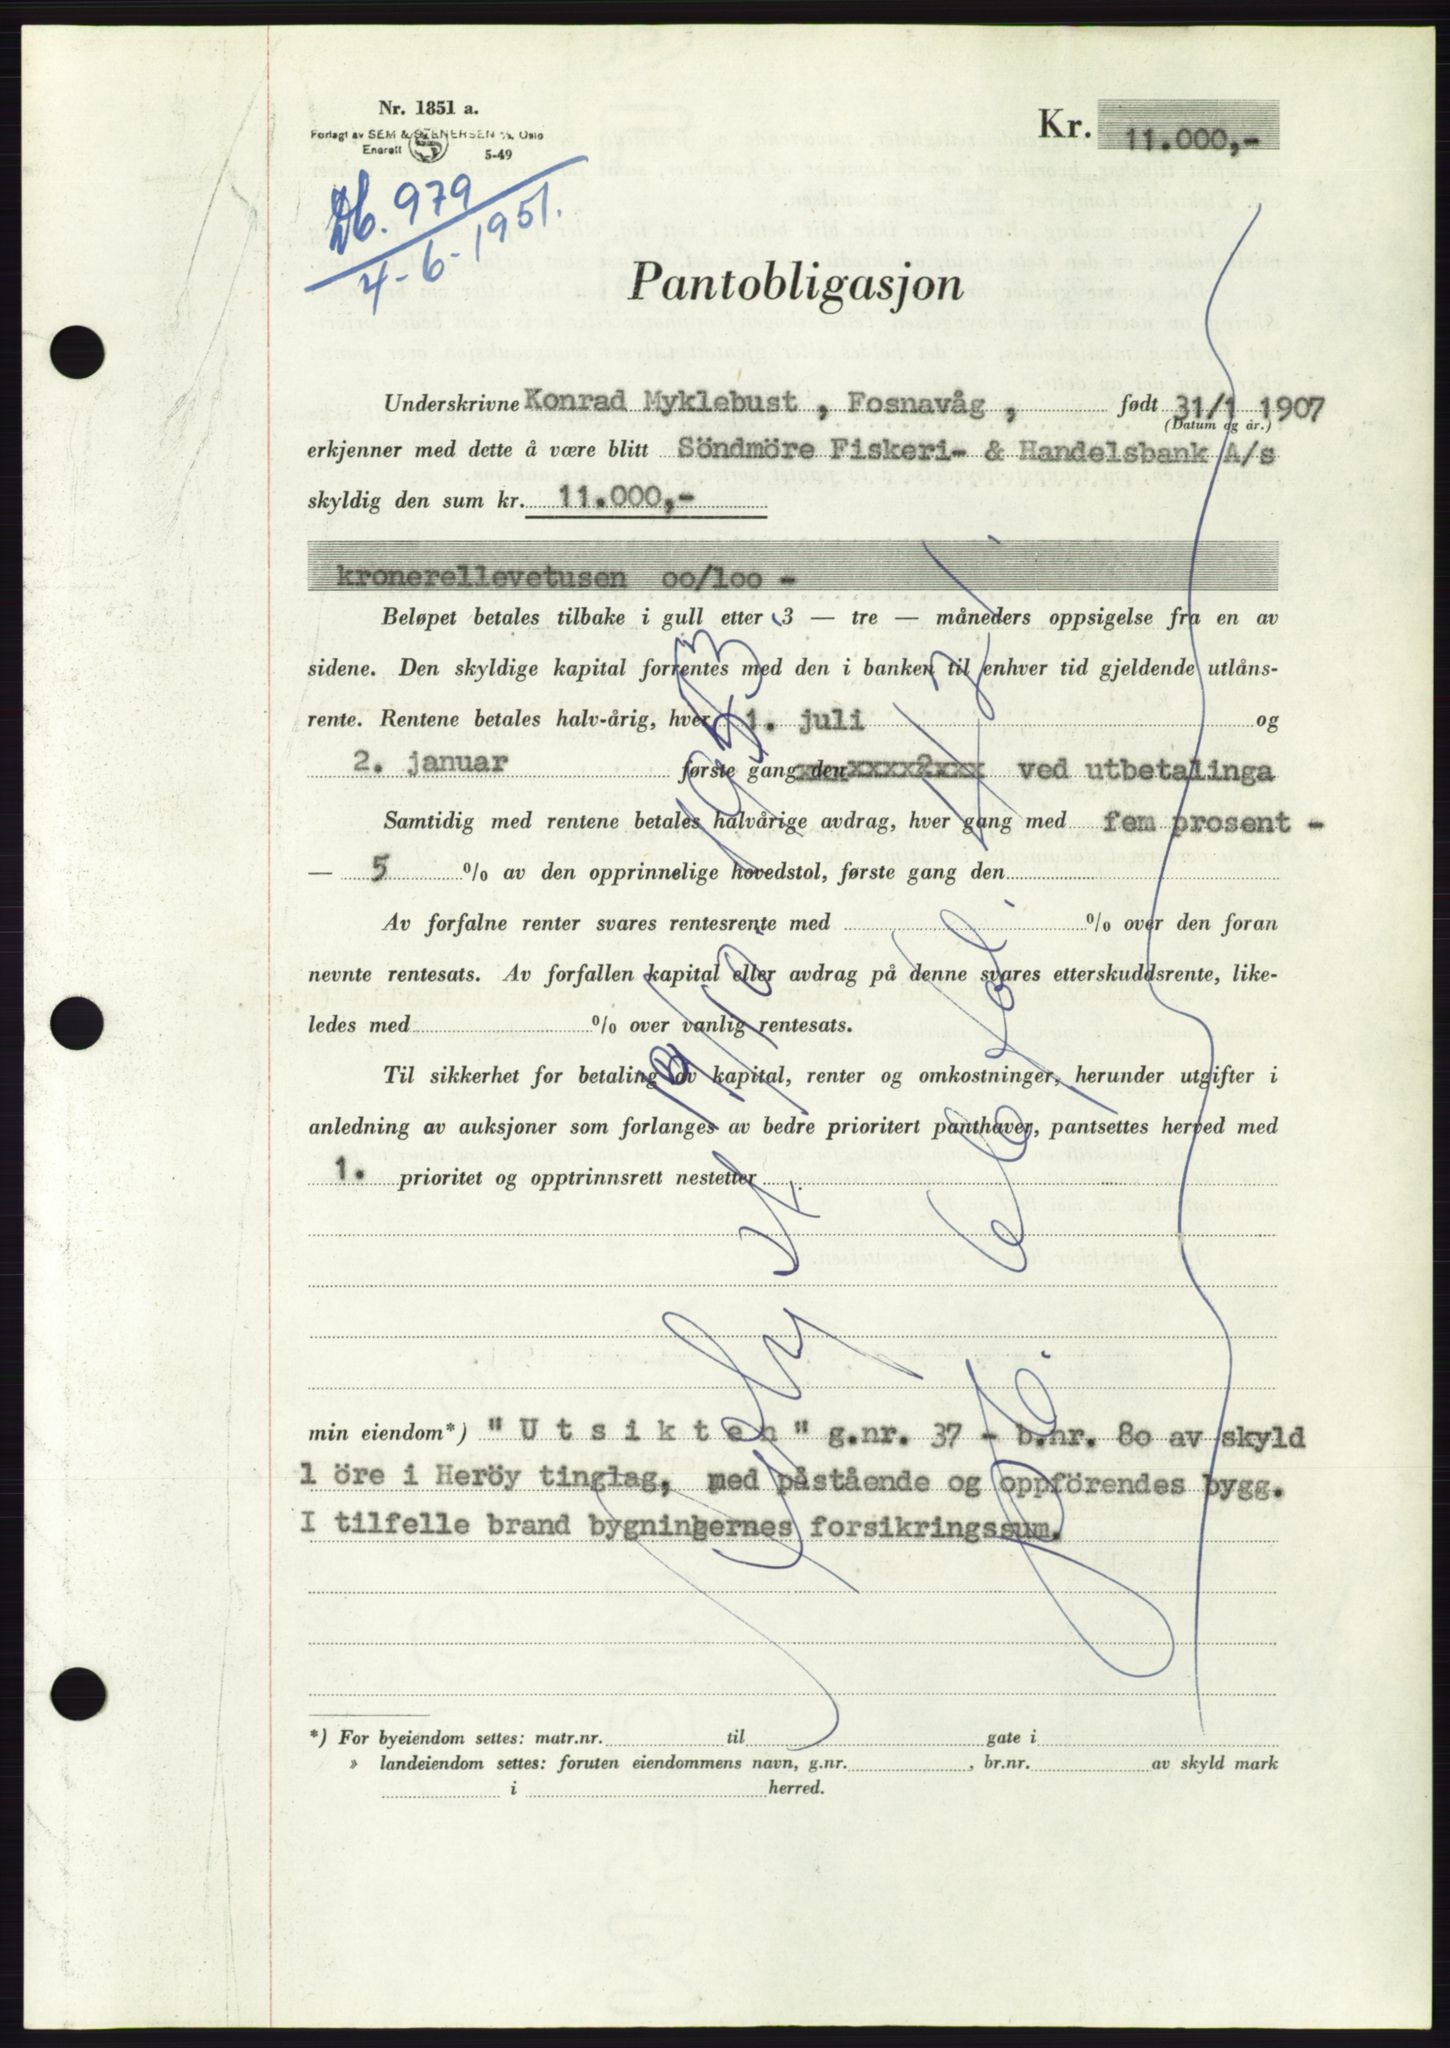 Nr. 1851 a.
Forlagt av SEM & STENERSEN A/S, Oslo
Enerett 5-49
Kr. 11.000,-
Db. 979
4-6-1951.
Pantobligasjon
Underskrivne Konrad Myklebust , Fosnavåg , født 31/1 1907
(Datum og år.)
erkjenner med dette å være blitt Söndmöre Fiskeri- & Handelsbank A/s
skyldig den sum kr. 11.000,-
kronerellevetusen oo/1oo -
Beløpet betales tilbake i gull etter 3 — tre — måneders oppsigelse fra en av
sidene. Den skyldige kapital forrentes med den i banken til enhver tid gjeldende utlåns-
rente. Rentene betales halv-årig, hver 1. juli og
2. januar første gang den xxxx2xxx ved utbetalinga
Samtidig med rentene betales halvårige avdrag, hver gang med fem prosent -
— 5 % av den opprinnelige hovedstol, første gang den
Av forfalne renter svares rentesrente med % over den foran
nevnte rentesats. Av forfallen kapital eller avdrag på denne svares etterskuddsrente, like-
ledes med % over vanlig rentesats.
Til sikkerhet for betaling av kapital, renter og omkostninger, herunder utgifter i
anledning av auksjoner som forlanges av bedre prioritert panthaver, pantsettes herved med
1. prioritet og opptrinnsrett nestetter
min eiendom*) " U t s i k t e n " g.nr. 37 - b.nr. 8o av skyld
1 öre i Heröy tinglag, med påstående og oppförendes bygg.
I tilfelle brand bygningernes forsikringssum.
*) For byeiendom settes: matr.nr. til gate i
» landeiendom settes: foruten eiendommens navn, g.nr. , br.nr. av skyld mark
i herred.